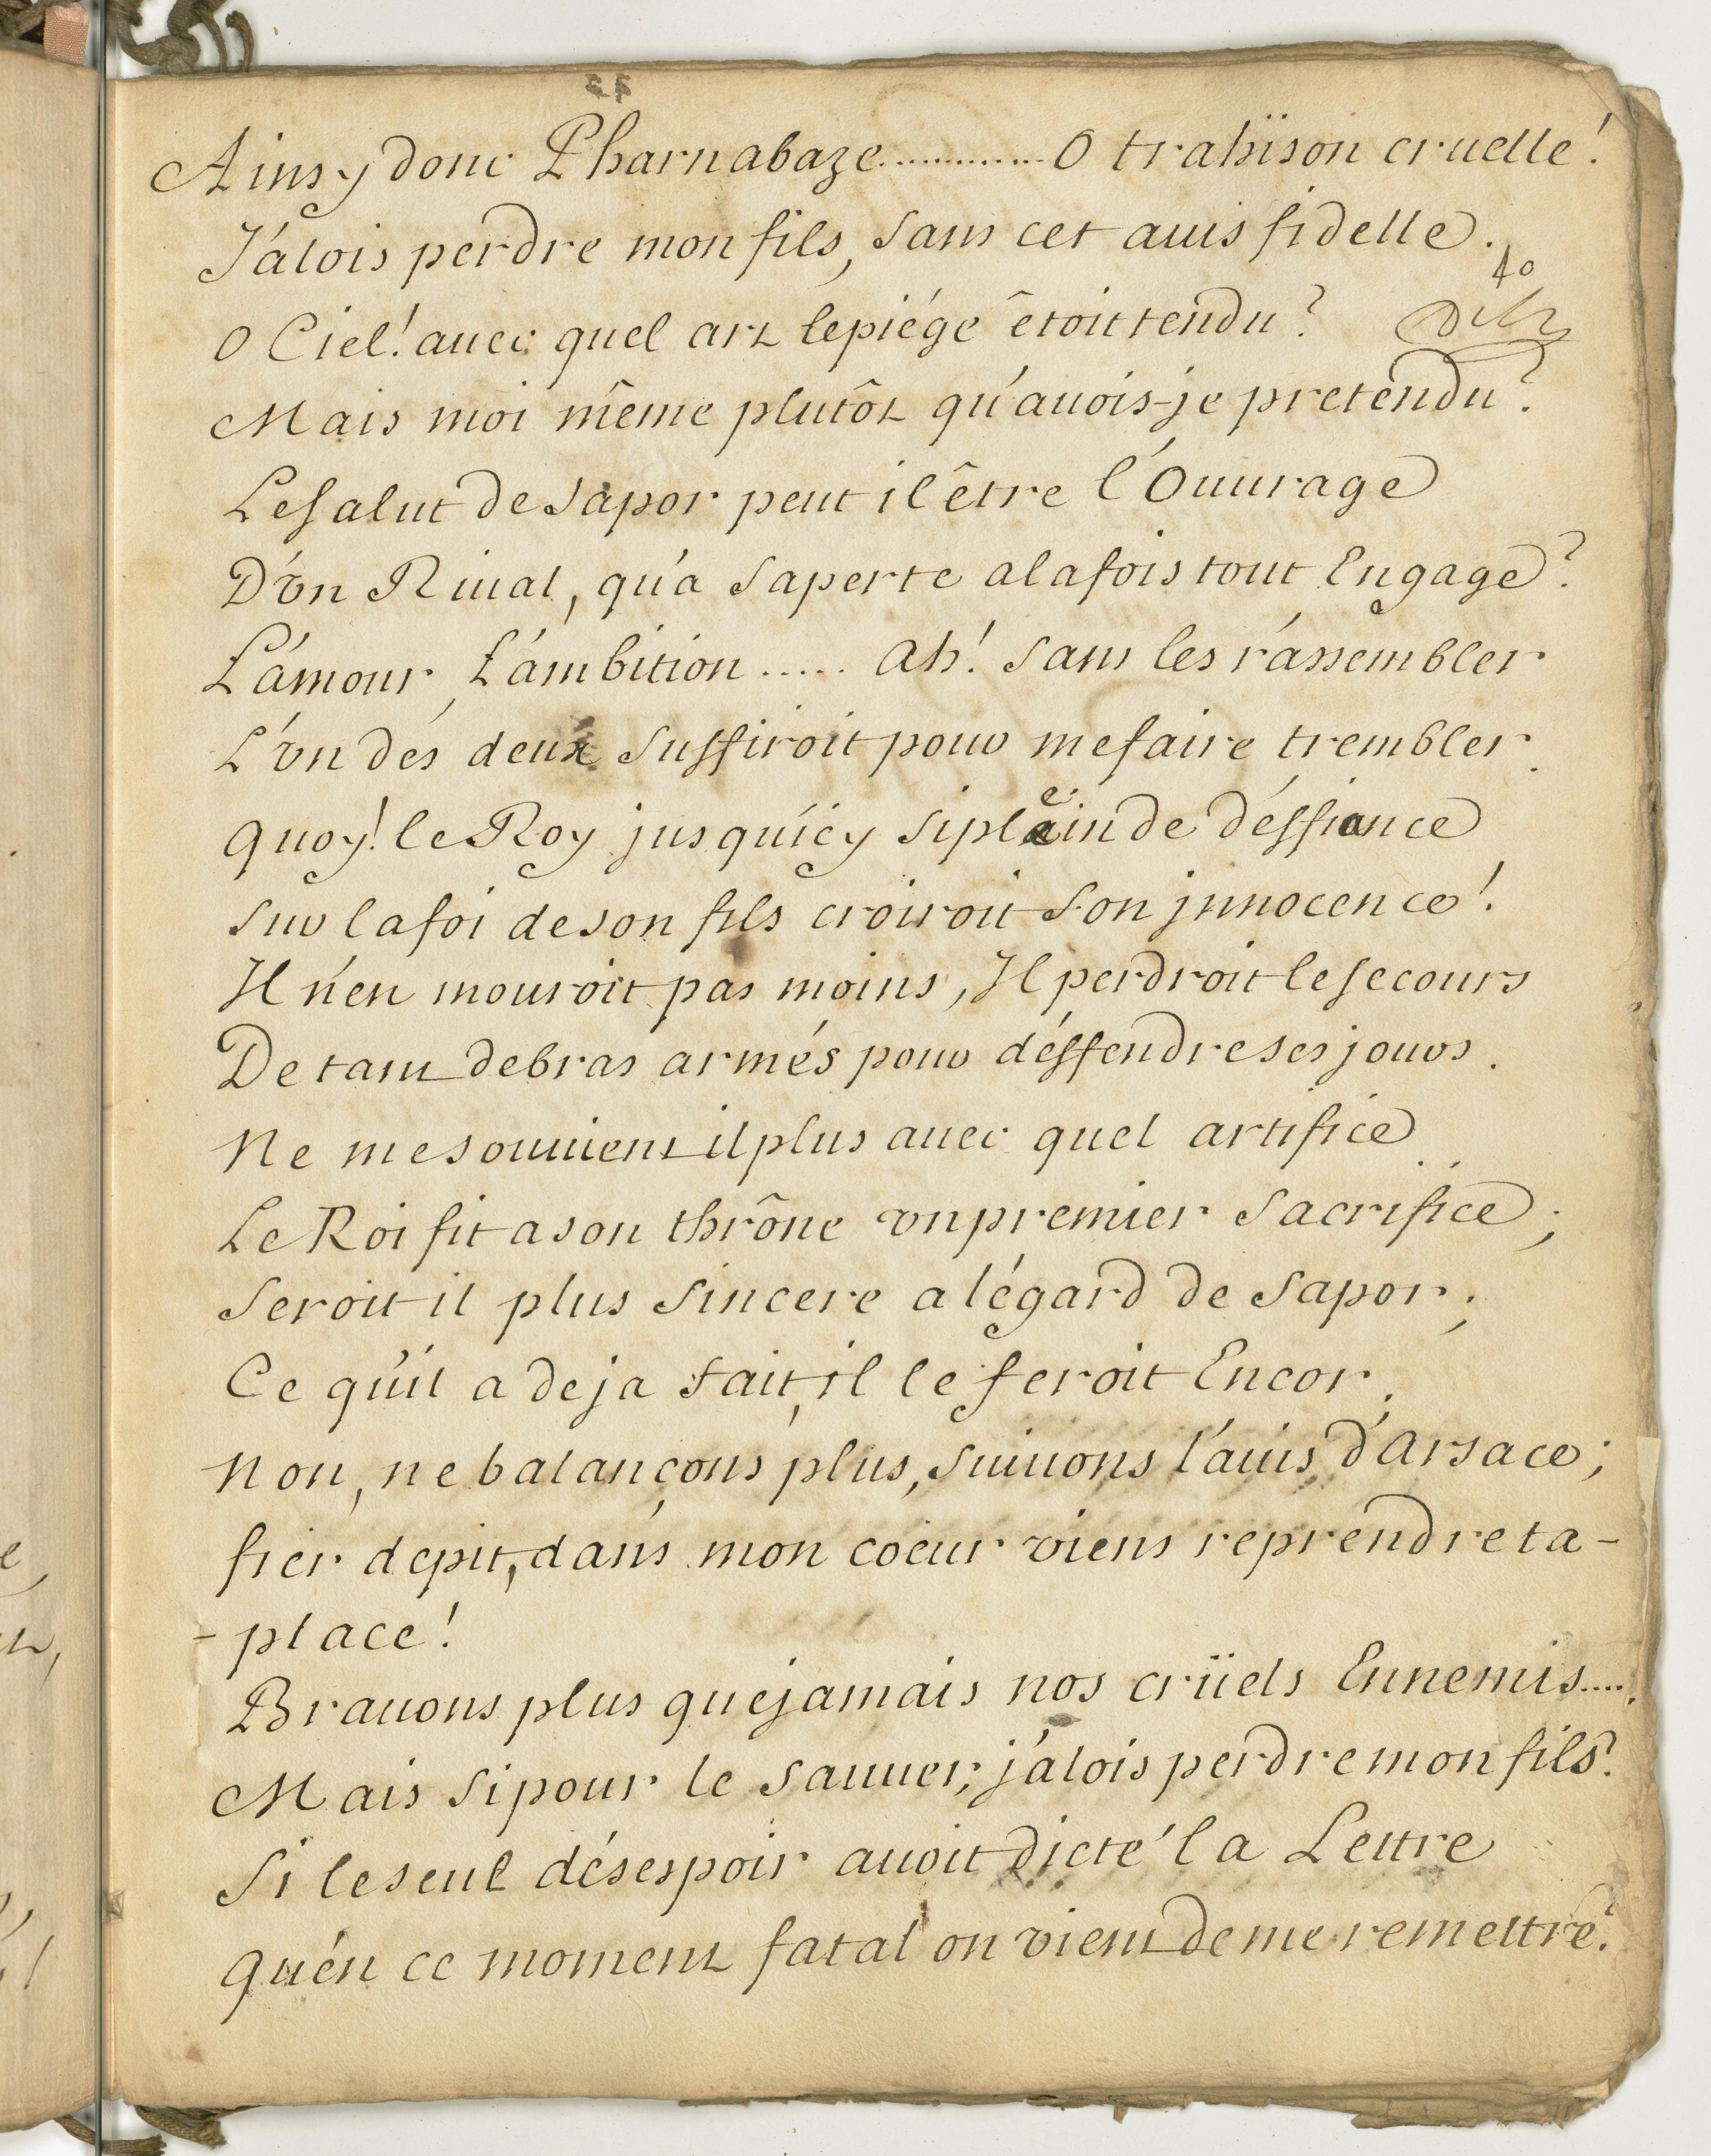 Ainsy donc Pharnabaze............ O trahïson cruelle!
J'alois perdre mon fils, sans cet auis fidelle.
40
O Ciel! auec quel art le piége êtoit tendu?
Mais moi même plutôt qu'auois-je pretendu?
Le salut de Sapor peut il être l'Ouurage
D'vn Riual, qu'a sa perte a la fois tout Engage?
L'amour, L'ambition ..... ah! sans les rassembler
L'vn des deux suffiroit pour me faire trembler.
quoy! le Roy jusqu'icy si plein de déffiance
sur la foi de son fils croiroit son jnnocence!
Il n'en mouroit pas moins, Il perdroit le secours
De tant de bras armés pour déffendre ses jours.
Ne me souuient il plus auec quel artifice
Le Roi fit a son thrône vn premier sacrifice;
seroit il plus sincere a l'égard de Sapor;
Ce qu'il a deja fait, il le feroit Encor.
Non, ne balançons plus, suiuons l'auis d'Arsace;
fier depit, dans mon coeur viens reprendre ta-
-place!
Brauons plus que jamais nos crüels Ennemis....
Mais si pour le sauuer, j'alois perdre mon fils?
Si le seul désespoir auoit dicté la Lettre
qu'en ce moment fatal on vient de me remettre?